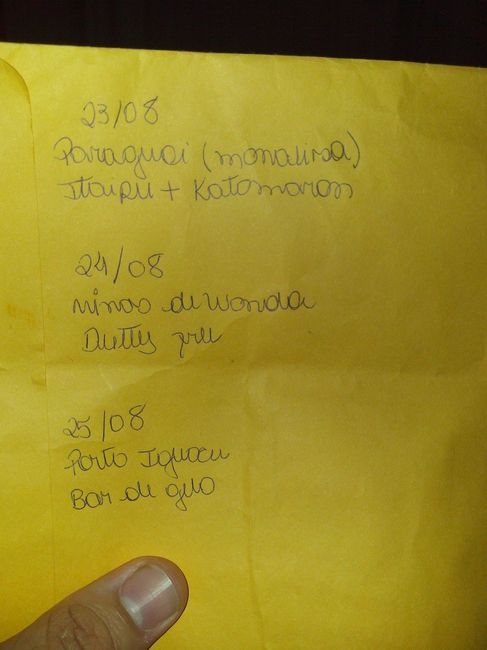 23/08
Paraguai (monalisa)
Itaipu + Katamaran
24/08
minas de wanda
Duty
25/08
Porto Iguacu
Bar de gelo